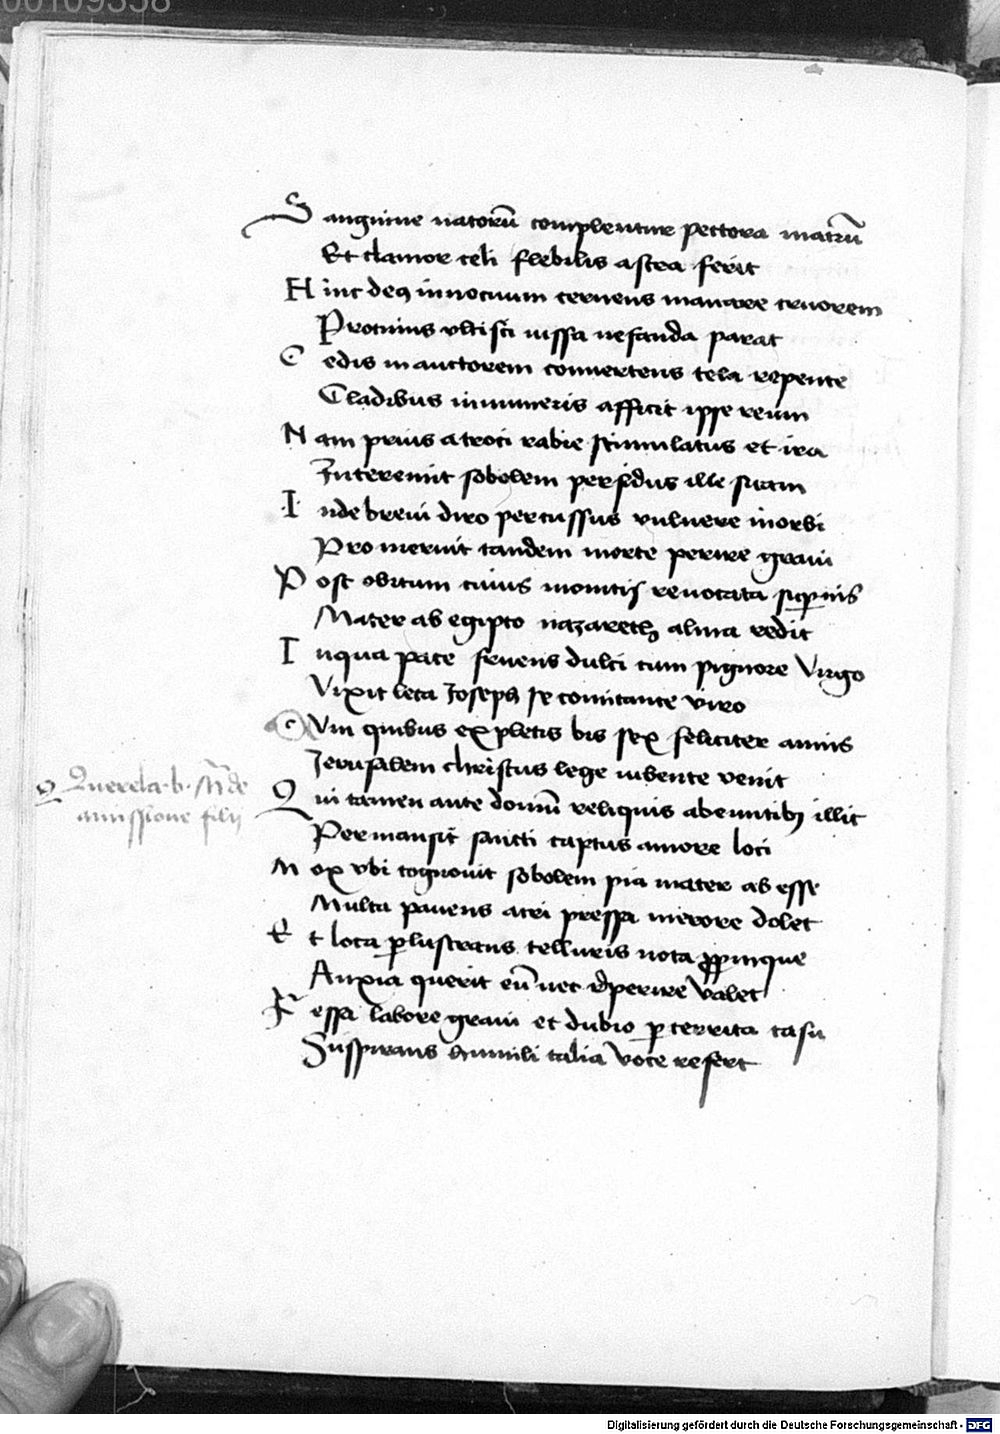 00109338
Sanguine natorū complentur pectora matrū
Et clamor celi flebilis astra ferit
Hinc deꝯ innocuum cernens manare cruorem
Protinus vltisci iussa nefanda parat
Cedis in auctorem conuertens tela repente
Cladibus innumeris afficit ipse reum
Nam prius atroci rabie stimulatus et ira
Interemit sobolem perfidus ille suam
Inde breui diro percussus vulnere morbi
Promeruit tandem morte perire graui
Post obitum cuius monitis reuocata supernis
Mater ab egipto nazareth alma redit
In qua pace fruens dulci cum pignore Virgo
Vixit leta Joseph se comitante viro
CVm quibus expletis bis sex feliciter annis
Jerusalem christus lege iubente venit
Querela b. M̄ de
amissione filij
Qui tamen ante domū reliquis abeuntibꝫ illic
Permansit sancti captus amore loci
Mox vbi cognouit sobolem pia mater ab esse
Multa pauens atri pressa merore dolet
Et loca ꝑlustrans telluris nota ꝓpinque
Anxia querit eū nec reperire valet
Fessa labore graui et dubio ꝑterrita casu
Suspirans humili talia voce refert
Digitalisierung gefördert durch die Deutsche Forschungsgemeinschaft - DFG